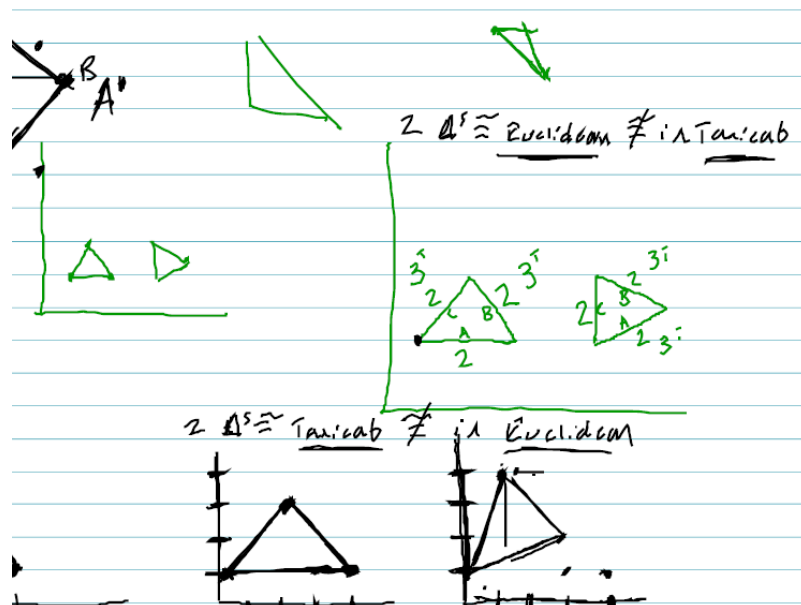 B
A'
2 Δˢ ≅ Euclidean ≇ in Taxicab
3ᵀ 3ᵀ 3ᵀ
2 2 2
C B 2 C B
A A
2 2 3ᵀ
2 Δˢ ≅ Taxicab ≇ in Euclidean